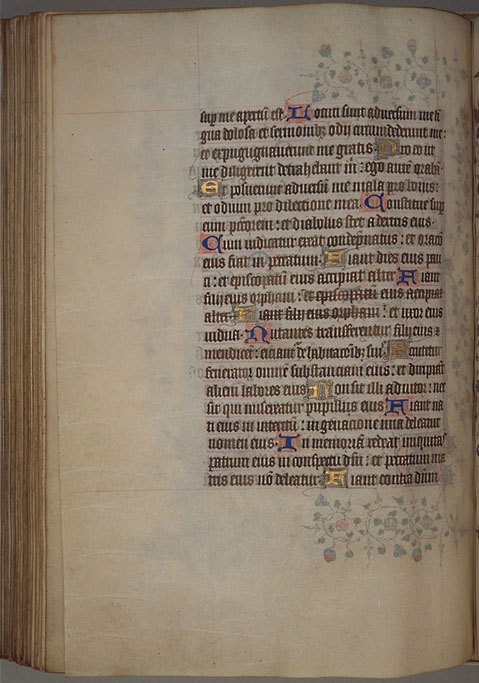 sup me apertū est. Locuti sunt adversum me li
gua dolosa et sermonibꝫ odij circumdederunt me:
et expugugnaverunt me gratis. Pro eo ut
me diligerent detrahebant m̄: ego autē orabā
Et posuerunt adversū me mala pro bonis:
et odium pro dilectione mea. Constitue sup
eum pctorem: et diabolus stet a dextris eius.
Cum iudicatur exeat condēpnatus: et oracō
eius fiat in peccatum. Fiant dies eius pau
ci: et episcopatū eius accipiat alter Fiant
filij eius orphani: et episcopatum eius accipiat
alter. Fiant filij eius orphani: et uxor eius
vidua. Nutantes transferentur filij eius &
mendicent: eiciant de habitacōibꝫ suis. Scrutetur
fenerator omnem substanciam eius: et diripiant
alieni labores eius. Non sit illi adiutor: nec
sit qui misereatur pupillis eius Fiant na
ti eius in interitū: in generacione una deleatur
nomen eius. In memoriā redeat iniquitas
patrum eius in conspectu dn̄i: et peccatum ma
tris eius nō deleatur. Fiant contra dn̄m